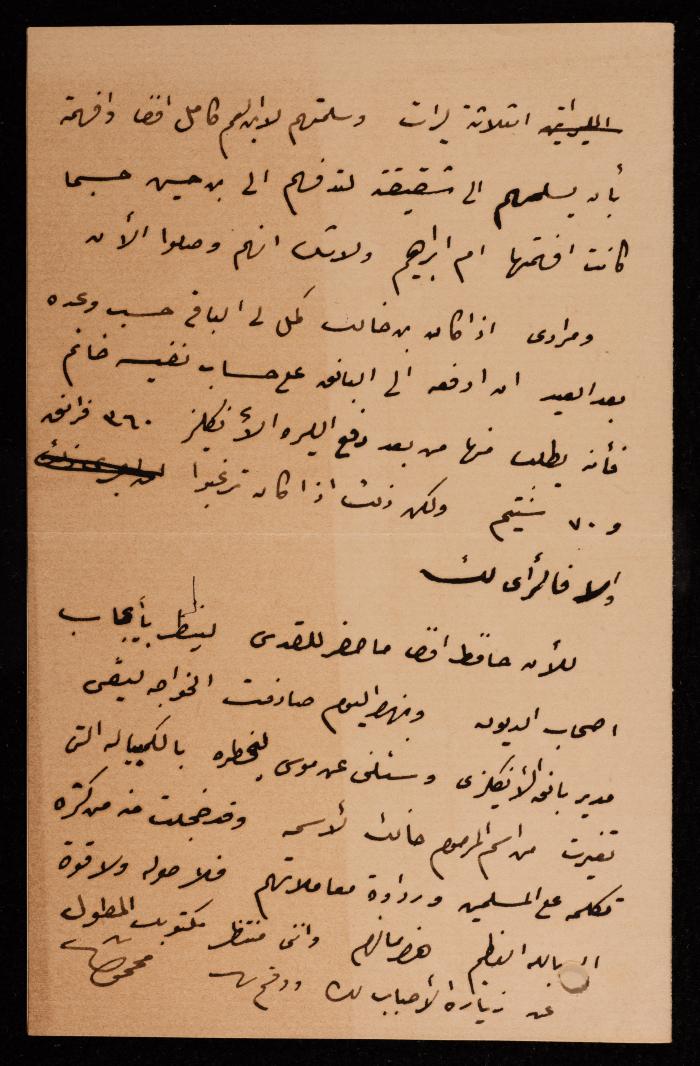 الثلاثة ليرات وسلمتهم لابن العم كامل افندي وافهمته
بأن يسلمهم الى شقيقته لتدفعهم الى بن حسين حسبما
كانت افهمتها ام ابراهيم ولا شك انهم وصلوا الأن
ومرادى اذا كان بن خالت كمل لى الباقى حسب وعده
بعد العيد ان ادفعه الى البانق على حساب نفيسه خانم
فأنه يطلب منها من بعد دفع الليره الأنكليز ٣٦٠ فرانق
و ٧٠ سنتيم ولكن ذلك اذا كان ترغبوا
والا فالرأى لك
للأن حافظ افندي ما حضر للقدس لينظر بأيجاب
اصحاب الديون وبهذا اليوم صادفت الخواجه ليفى
مدير بانق الأنكليزى وسئلنى عن موسى ليخطره بالكمبياله التى
تغيرت من اسم المرحوم خالك لأسمه وقد خجلت منه من كثرة
تكلمه على المسلمين ورداوة معاملاتهم فلا حول ولا قوة
الا بالله العظيم هذا مالزم واننى منتظر مكتوبك المطول
عن زيارة الأحباب لك ودمتم